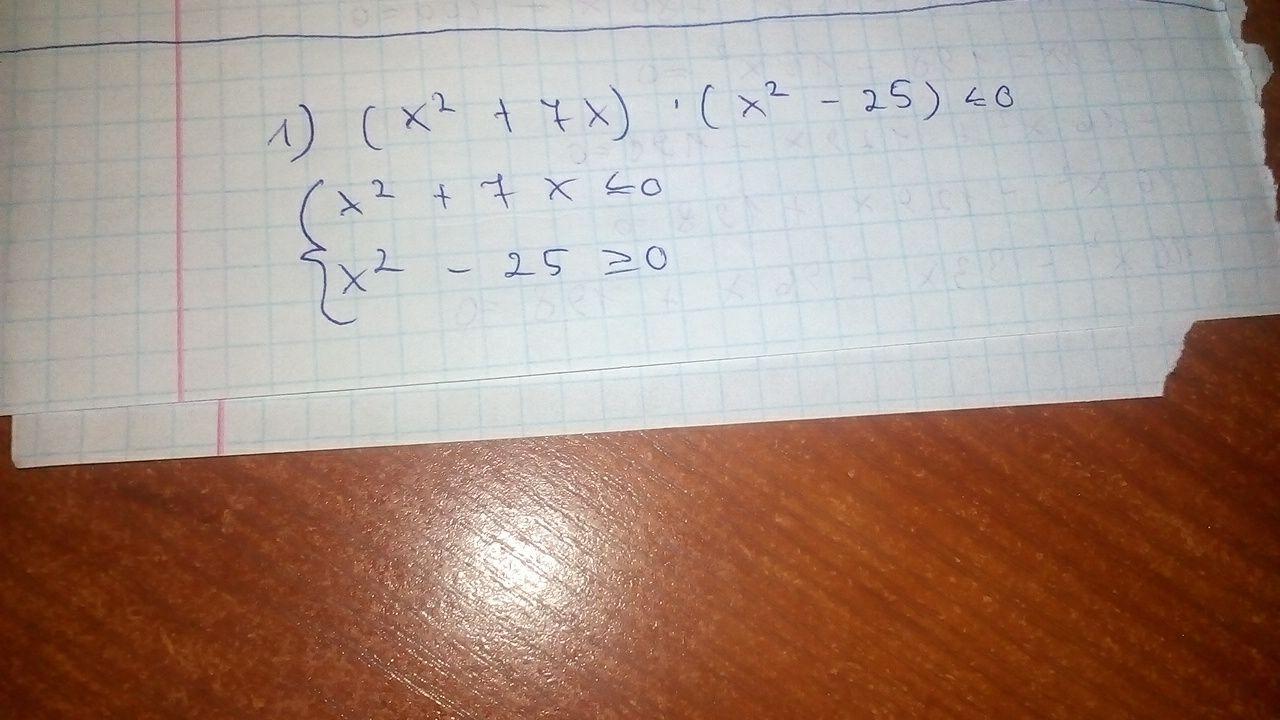 1) (x² + 7x) · (x² - 25) ≤0
x² + 7 x ≤0
x² - 25 ≥0